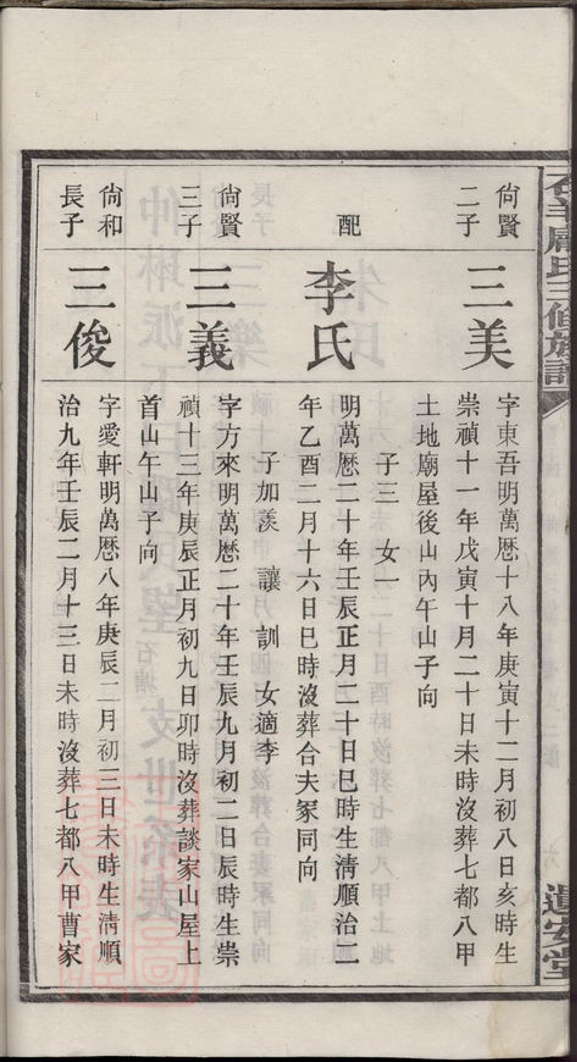 尙賢二子
三美
字東吾明萬厯十八年庚寅十二月初八日亥時生
崇禎十一年戊寅十月二十日未時沒葬七都八甲
土地廟屋後山內午山子向
子三　女一
配
李氏
明萬厯二十年壬辰正月二十日巳時生淸順治二
年乙酉二月十六日巳時沒葬合夫冢同向
子加羨　讓　訓　女適李
尙賢三子
三義
字方來明萬厯二十年壬辰九月初二日辰時生崇
禎十三年庚辰正月初九日卯時沒葬談家山屋上
首山午山子向
尙和長子
三俊
字愛軒明萬厯八年庚辰二月初三日未時生淸順
治九年壬辰二月十三日未時沒葬七都八甲曹家
氏三修族譜
遺安堂